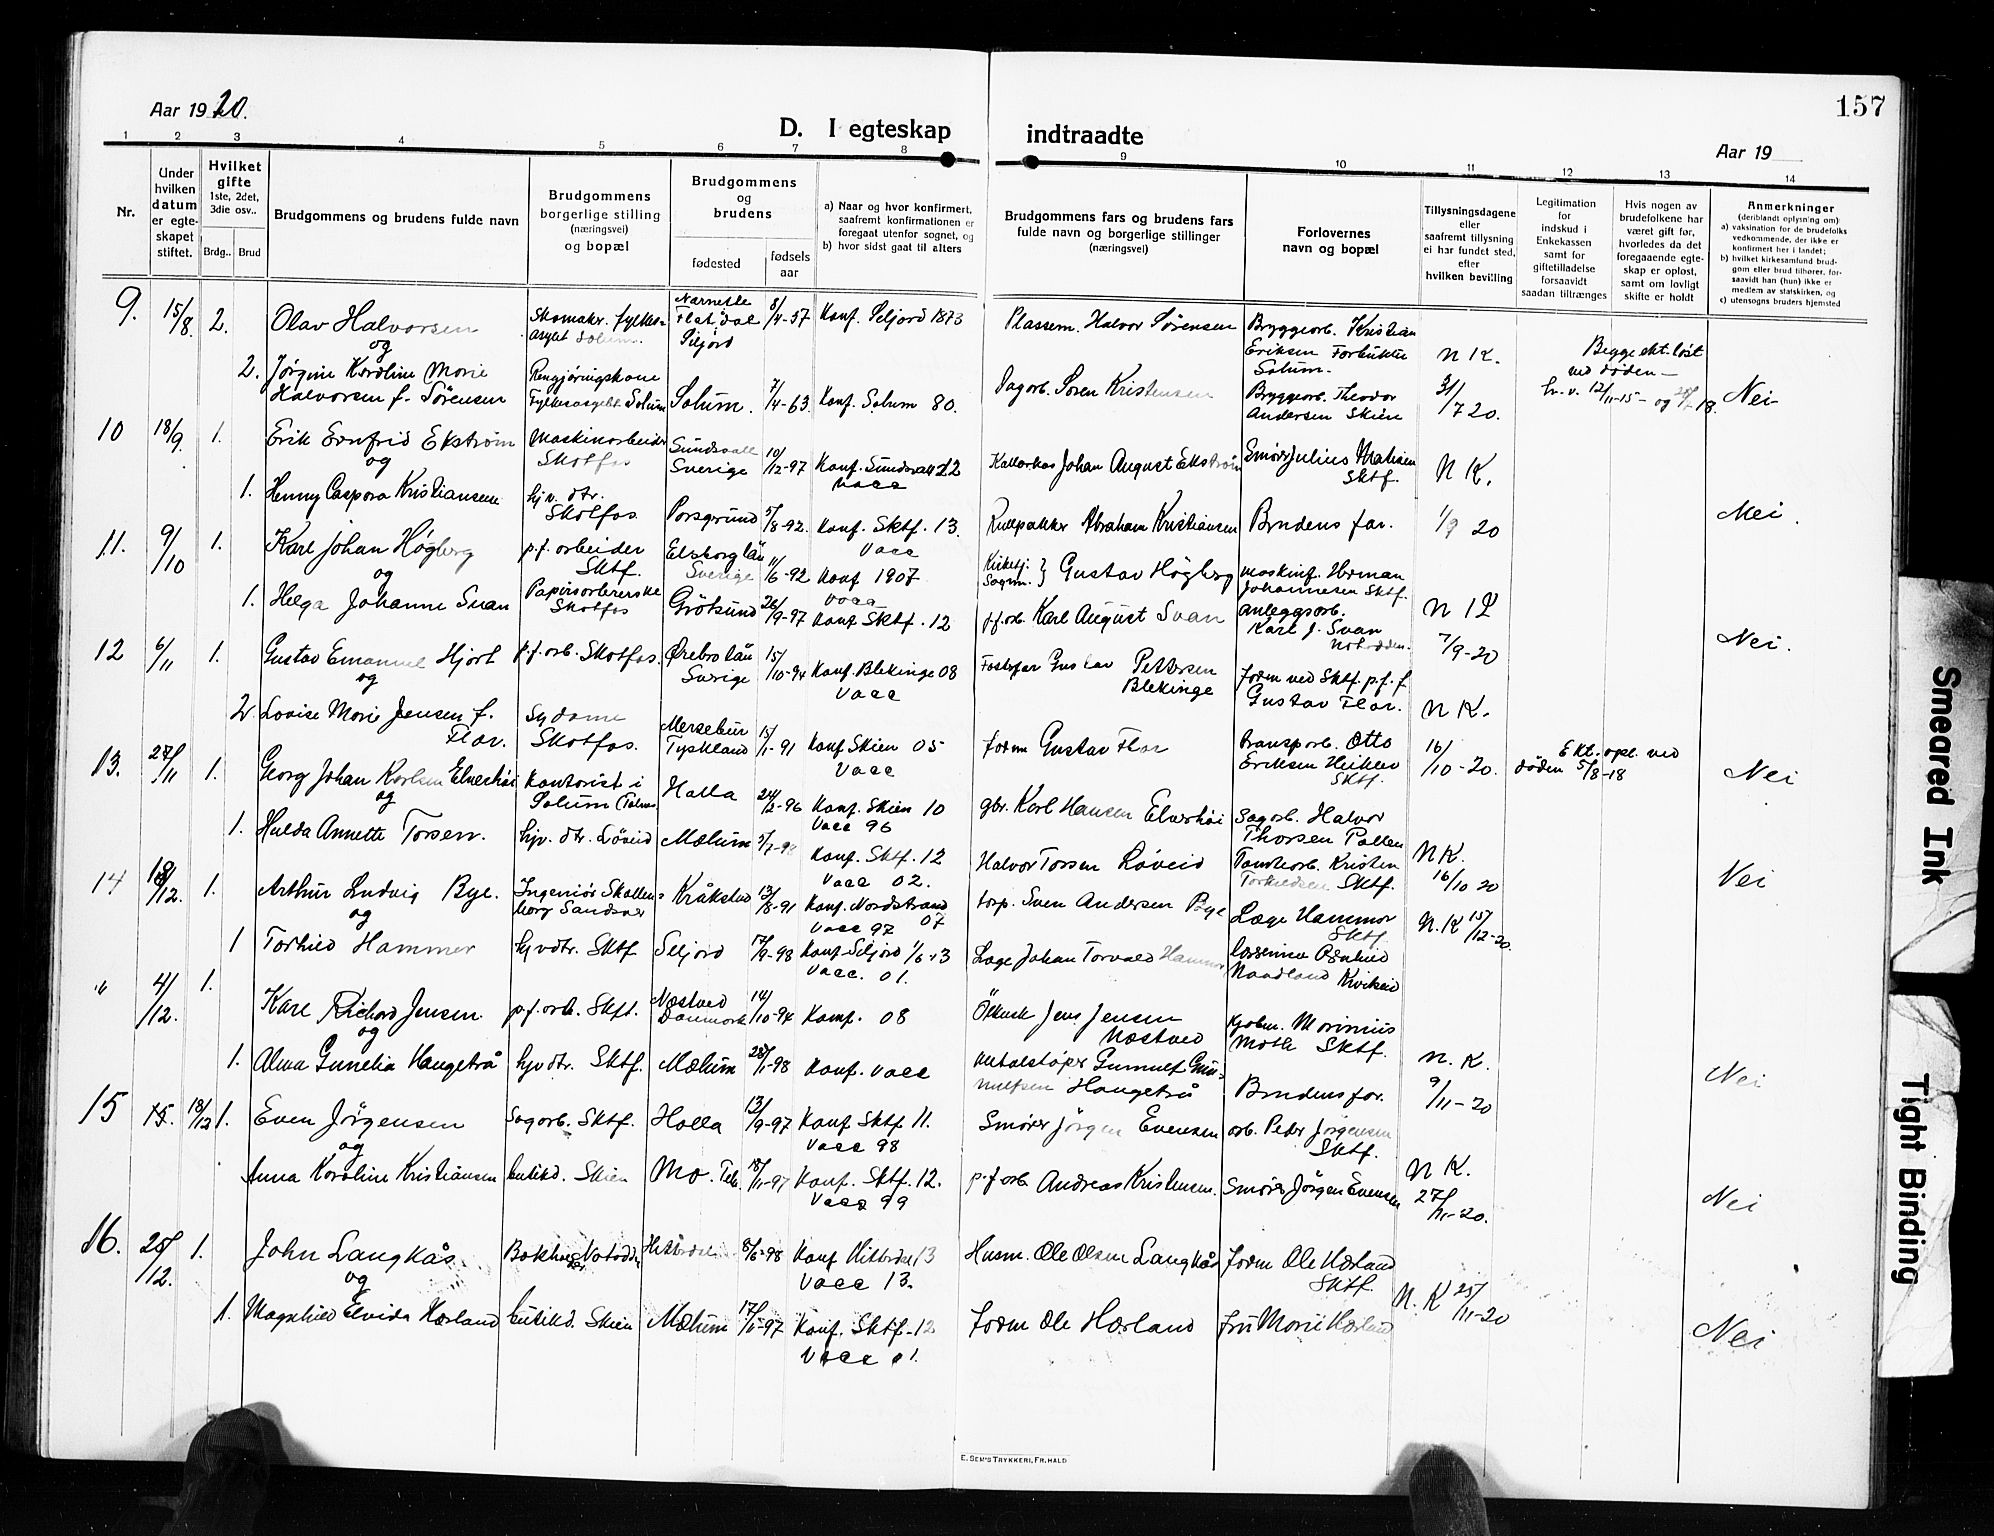 Aar 1920.
157
D. I egteskap indtraadte
Aar 19
1 2 3 4 5 6 7 8 9 10 11 12 13 14
Nr.
Under hvilken datum er egteskapet stiftet.
Hvilket gifte
1ste, 2det, 3die osv..
Brdg.. Brud
Brudgommens og brudens fulde navn
Brudgommens borgerlige stilling (næringsvei) og bopæl
Brudgommens og brudens
fødested
fødsels aar
a) Naar og hvor konfirmert, saafremt konfirmationen er foregaat utenfor sognet, og
b) hvor sidst gaat til alters
Brudgommens fars og brudens fars fulde navn og borgerlige stillinger (næringsvei)
Forlovernes navn og bopæl
Tillysningsdagene eller saafremt tillysning ei har fundet sted, efter hvilken bevilling
Legitimation for indskud i Enkekassen samt for giftetilladelse forsaavidt saadan tiltrænges
Hvis nogen av brudefolkene har været gift før, hvorledes da det foregaaende egteskap er opløst, samt om lovligt skifte er holdt
Anmerkninger
(deriblandt oplysning om)
a) vaksination for de brudefolks vedkommende, der ikke er konfirmert her i landet;
b) hvilket kirkesamfund brudgom eller brud tilhører, forsaavidt han (hun) ikke er medlem av statskirken, og
c) utensogns bruders hjemsted
9. 15/8. 2. Olav Halvorsen Skomaker. fylkesasylet Solum. Flatdal Seljord 8/4-57 Konf. Seljord 1873 Plassem. Halvor Sørensen Bryggeorb. Kristian Eriksen Solum. N K.
og
2. Jørgine Karoline Marie Halvorsen f. Sørensen Rengjøringskone Fylkesasylet Solum Solum. 7/4-63. Konf. Solum 80. Dagorb. Søren Kristensen Bryggeorb. Theodor Andersen Skien 31/7 20. Begge ekt. løst ved døden 12/11-15- og 18. Nei
10 18/9. 1. Erik Ernfrid Ekstrøm Maskinarbeider Skotfos Sundsvall Sverige 10/12-97 Konf. Sundsvall 12 Vacc Johan August Ekstrøm Smører Julius Mathisen Sktf. N K.
og
1. Henny Caspara Kristiansen hjv. dtr. Skotfos. Porsgrund 5/8-92. Konf. Sktf. 13. Vacc Rullpakker Abraham Kristiansen Brudens far. 1/9 20 Nei.
11. 9/10 1. Karl Johan Høgberg p.f. arbeider Sktf. Elsborg län Sverige 11/6-92 Konf 1907 Vacc Gustav Høgberg maskinf. Herman Johannesen Sktf. N K
og
1. Helga Johanne Svan Papirsorbererske Skotfos Grötsund 26/9-97 Konf Sktf. 12 p.f. orb. Karl August Svan anleggsorb. Karl J. Svan Notodden. 7/9-20 Nei.
12 6/11 1. Gustav Emanuel Hjort p.f. orb. Skotfos. Ørebro län Sverige 15/10-94 Konf. Blekinge 08 Vacc Fosterfar Gustav Pettersen Blekinge form ved Sktf. p.f. f. Gustav Flor. N K.
og
2. Lovise Marie Jensen f. Flor. Sydame Skotfos. Merseburg Tyskland 15/1-91 Konf Skien 05 Vacc form Gustav Flor transporb. Otto Eriksen Sktf. 16/10-20. Ekt. opl. ved døden 5/8-18 Nei
13. 27/11 1. Georg Johan Karlsen Elverhøi Kontorist i Solum Holla 24/2-96 Konf. Skien 10 Vacc 96 gbr. Karl Hansen Elverhøi Sagorb. Halvor Thorsen
og
1. Hulda Annette Torsen. hjv. dtr. Løveid Mælum Konf. Sktf. 12 Vacc 02. Halvor Torsen Løveid Tomteorb. Kristen Sktf. N K. 16/10 20 Nei
14 18/12. 1. Arthur Ludvig Bye. Ingeniør Sandsvær Kråkstad 13/8-91 Konf. Nordstrand 07 Vacc 97 torp. Sven Andersen Bye Læge Hammer Sktf. N. K 15/12-20.
og
1 Torhild Hammer hjv dtr. Sktf Seljord 17/9-98 Konf Seljord 1/6 13 Vacc. 01. Læge Johan Torvald Hammer
" 4/12. 1. Karl Richard Jensen. p.f. orb. Sktf. Næstved Danmark 14/10-94 Konf. 08 Jens Jensen Næstved Marinius Moth Sktf. N. K.
og
1. Alma Gunelia Haugetrå hjv dtr. Sktf. Mælum 28/1-98 Konf. Vacc metalstøper Gunnulf Gunnulfsen Haugetrå Brudens far. 9/11-20 Nei
15 18/12 1. Even Jörgensen Sagorb. Sktf. Holla 13/9-97 Konf Sktf 11. Vacc 98 Smører Jörgen Evensen orb. Peder Jörgensen Sktf. N K.
og
Anna Karoline Kristiansen butikd. Skien Mo. Tel. 18/11-97 Konf. Sktf. 12. Vacc 99 p.f orb Andreas Kristensen. Smører Jörgen Evensen 27/11-20. Nei
16. 26/12. 1. John Langkås Notodden 8/6-98 Konf Hitterdal 13 Vacc 13. Husm. Ole Olsen Langkås form Ole Hærland Sktf. N. K 25/11-20
og
1. Magnhild Elvida Hærland butikd. Skien Mælum 17/11-97 Konf. Sktf. 12 Vacc 01. form Ole Hærland fru Marie Hærland Nei
E. Sem's Trykkeri, Fr.hald
Smeared Ink
Tight Binding